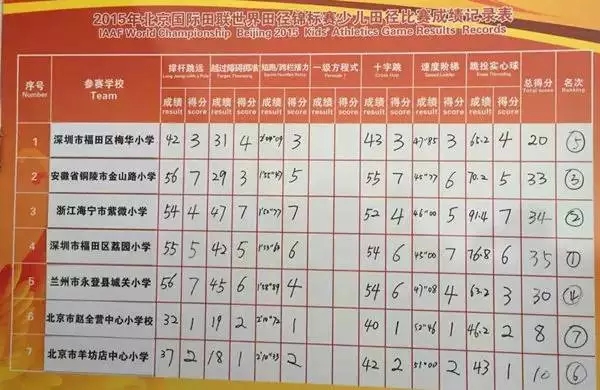 2015年北京国际田联世界田径锦标赛少儿田径比赛成绩记录表
IAAF World Championship Beijing 2015 Kids' Athletics Game Results Records
序号 参赛学校 撑杆跳远 越过障碍掷准 短跑/跨栏接力 一级方程式 十字跳 速度阶梯 跪投实心球 总得分 名次
Number Team Formula 1 Cross Hop Speed Ladder Total score Ranking
成绩 得分 成绩 得分 成绩 得分 成绩 得分 成绩 得分 成绩 得分 成绩 得分
result score result score result score result score result score result score result score
1 深圳市福田区梅华小学 42 3 31 4 3 43 3 47"85 3 65.2 4 20 ⑤
2 安徽省铜陵市金山路小学 56 7 29 3 5 55 7 45"77 6 70.2 5 33 ③
3 浙江海宁市紫微小学 54 4 47 7 7 52 4 46"00 5 91.4 7 34 ②
4 深圳市福田区荔园小学 55 5 42 5 6 54 6 45"00 7 76.8 6 35 ①
5 兰州市永登县城关小学 56 7 45 6 1'58"89 4 54 6 47"08 4 63.2 3 30 ④
6 北京市赵全营中心小学校 32 1 19 2 2'10"72 1 40 1 52"46 1 46.2 2 8 ⑦
7 北京市羊坊店中心小学 37 2 18 1 2 42 2 51"00 2 43 1 10 ⑥